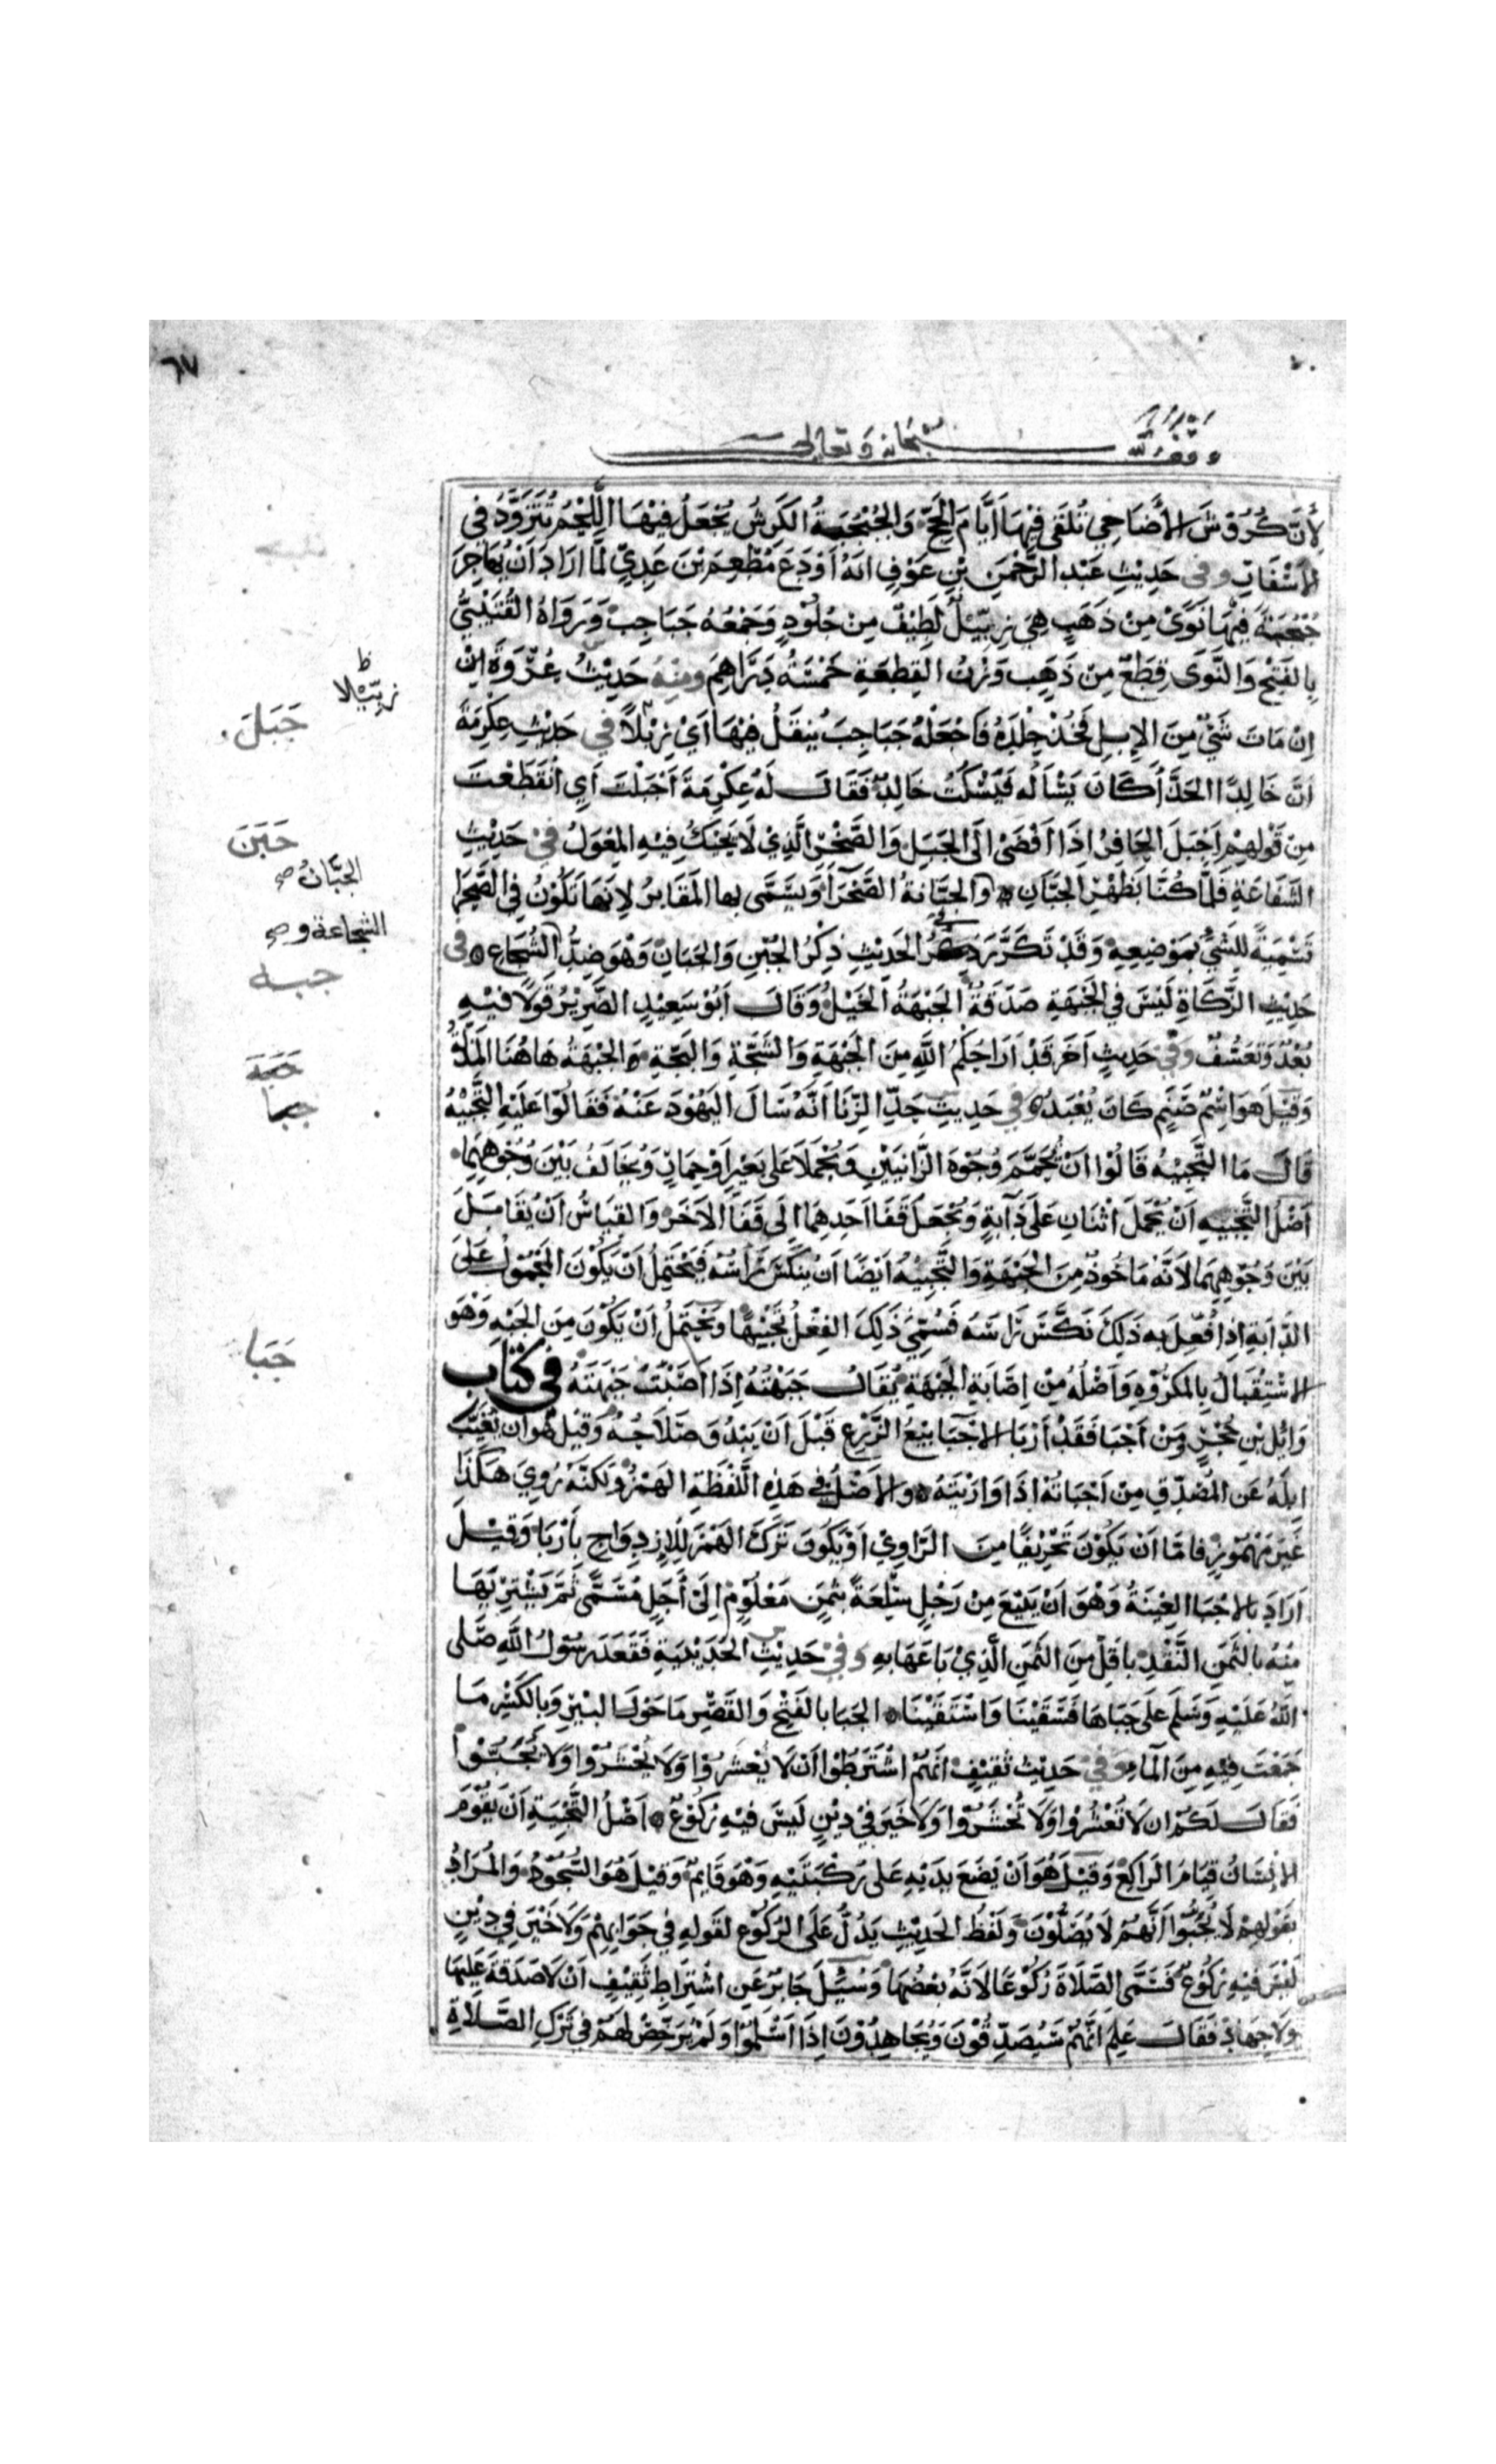 ٦٧
وقف لله سبحانه وتعالى
لِأَنَّ كُرُوْشَ الأَضَاحِي تُلقَى فِيْهَا اَيَّامَ الحَجِّ وَالجُبْجُبَةُ الكَرِشُ يُجْعَلُ فِيْهَا اللَّحْمُ يُتَزَوَّدُ فِي
الأَسْفَارِ وفي حَدِيْثِ عَبْدِ الرَّحْمنِ بْنِ عَوْفٍ انَّهُ اَوْدَعَ مُطْعِمَ بْنَ عَدِيٍّ لَمَّا ارَادَ اَنْ يُهَاجِرَ
جُبْجُبَةً فِيْهَا نَوًى مِنْ ذَهَبٍ هِيَ زِبِّيْلٌ لَطِيْفٌ مِنْ جُلُوْدٍ وَجَمْعُهُ جَبَاجِبُ وَرَوَاهُ القُتَيْبِيُّ
بِالفَتْحِ وَالنَّوَى قِطَعٌ مِنْ ذَهَبٍ وَزْنُ القِطعَةِ خَمْسَةُ دَرَاهِمَ ومِنْهُ حَدِيْثُ عُرْوَةَ اِنْ
اِنْ مَاتَ شَيْءٌ مِنَ الاِبِلِ فَخُذْ جِلْدَهُ فَاجْعَلْهُ جَبَاجِبَ يُنقَلُ فِيْهَا اَيْ زِبْلًا في حَدِيْثِ عِكْرِمَةَ
اَنَّ خَالِدًا الحَذَّاءَ كَانَ يَسْأَلُه فَيَسْكُتُ خَالِدٌ فَقَالَ لَهُ عِكْرِمَةَ اَجْبَلْتَ اَيِ انْقَطَعْتَ
مِنْ قَوْلِهِمْ اَجْبَلَ الحَافِرُ اِذَا اَفْضَى اِلَى الجَبَلِ وَالصَّخْرِ الَّذِيْ لَا يَحِيْكُ فِيْهِ المِعْوَلُ في حَدِيْثِ
الشَّفَاعَةِ فَلَمَّا كُنَّا بِظَهْرِ الجَبَّانِ وَالجَبَّانَةُ الصَّحْرَاءُ وَيُسَمَّى بها المَقَابِرُ لِاَنَّهَا تَكُوْنُ فِي الصَّحْرَا
تَسْمِيَةً لِلشَّيْءِ بِمَوْضِعِهِ وَقَدْ تَكَرَّرَ فِي الحَدِيْثِ ذِكْرُ الجُبْنِ وَالجَبَانِ وَهْوَ ضِدُّ الشُّجَاعِ في
حَدِيْثِ الزَّكَاةِ لَيْسَ فِي الجَبْهَةِ صَدَقَةٌ الجَبْهَةُ الخَيْلُ وَقَالَ اَبُوْ سَعِيْدٍ الضَّرِيْرُ قَوْلًا فِيْهِ
بُعْدٌ وَتَعَسُّفٌ وَفي حَدِيثٍ آخَرَ قَدْ اَرَاحَكُمُ اللهُ مِنَ الجَبْهَةِ وَالسَّجَّةِ وَالبَجَّةِ وَالجَبْهَةُ هَاهُنَا المَذَلَّةُ
وَقِيْلَ هُوَ اسْمُ صَنَمٍ كَانَ يُعْبَدُ وفي حَدِيثِ حَدِّ الزِّنَا اَنَّهُ سَالَ اليَهُوْدَ عَنْهُ فَقَالُوْا عَلَيْهِ التَّجْبِيْهُ
قَالَ مَا التَّجْبِيْهُ قَالُوْا اَنْ تُحَمَّمَ وُجُوْهُ الزَّانِيَيْنِ وَيُحْمَلَا عَلَى بَعِيْرٍ اَوْ حِمَارٍ وَيُخَالَفُ بَيْنَ وُجُوْهِهِمَا
اَصْلُ التَّجْبِيهِ اَنْ يُحْمَلَ اثْنَانِ عَلَى دَابَّةٍ وَيُجْعَلَ قَفَا اَحَدِهِمَا اِلَى قَفَا الاَخَرِ وَالقِيَاسُ اَنْ يُقَابَلَ
بَيْنَ وُجُوْهِهِمَا لِاَنَّهُ مَاخُوذٌ مِنَ الجَبْهَةِ وَالتَّجْبِيْهُ اَيْضًا اَنْ يُنَكِّسَ رَاْسَهُ فَيَحْتَمِلُ اَنْ يَكُوْنَ المَحْمُولُ عَلَى
الدَّابَةِ اِذَا فُعِلَ بِهِ ذَلِكَ نَكَّسَ رَاسَهُ فَسُمِّيَ ذَلِكَ الفِعْلُ تَجْبِيْهًا وَيَحْتَمِلُ اَنْ يَكُوْنَ مِنَ الجَبْهِ وَهْوَ
الاسْتِقْبَالُ بِالمَكْرُوْهِ وَاَصْلُهُ مِنْ اِصَابَةِ الجَبْهَةِ يُقَالُ جَبَهْتُهُ اِذَا اَصَبْتَ جَبْهَتَهُ في كتاب
وَائِلِ بْنِ حُجْرٍ وَمَنْ اَجْبَا فَقَدْ اَرْبَا الاِجْبَا بَيْعُ الزَّرْعِ قَبْلَ اَنْ يَبْدُوَ صَلَاحُهُ وَقِيْلَ هُوَ اَنْ يُغَيِّبَ
اِبِلَهُ عَنِ المُصَدِّقِ مِنْ اَجْبَاتُهُ اِذَا وَارَيْتَهُ وَالاَصْلُ فِي هَذِهِ اللَّفْظَةِ الهَمْزُ وَلَكِنَّهُ رُوِيَ هَكَذَا
غَيْرَ مَهْمُوزٍ فَامَّا اَنْ يَكُوْنَ تَحْرِيْفًا مِنَ الرَّاوِيْ اَوْ يَكُونَ تَرَكَ الهَمْزَ لِلاِزدِوَاجِ بِاَرْبَا وَقِيْلَ
اَرَادَ بالاِجْبَا العِيْنَةُ وَهْوَ اَنْ يَبِيْعَ مِنْ رَجُلٍ سِلْعَةً بِثَمَنٍ مَعْلُوْمٍ اِلَى أَجَلٍ مُسَمًّى ثُمَّ يَشْتَرِيَهَا
مِنْهُ بِالثَّمَنِ النَّقْدِ بِاَقَلَّ مِنَ الثَّمَنِ الَّذِيْ بَاعَهَا بِهِ وَفي حَدِيْثِ الحُدَيْبِيَةِ فَقَعَدَ رَسُوْلُ اللهِ صَلَّى
اللهُ عَلَيْهِ وَسَلَّمَ عَلَى جَبَاهَا فَسَقَيْنَا وَاسْتَقَيْنَا الجَبَا بِالفَتْحِ وَالقَصْرِ مَا حَوْلَ البِيْرِ وَبِالكَسْرِ مَا
جَمَعْتَ فِيْهِ مِنَ المَاءِ وَفي حَدِيْثِ ثَقِيْفٍ اَنَّهُمُ اشْتَرَطُوْا اَنْ لَا يُعْشَرُوْا وَلَا يُحْشَرُوْا وَلَا يُجَبُّوْا
فَقَالَ لَكُمْ اَنْ لَا تُعْشَرُوْا وَلَا تُحْشَرُوْا وَلَا خَيْرَ فِيْ دِيْنٍ لَيْسَ فِيْهِ رُكُوْعٌ اَصْلُ التَّجْبِيَةِ اَنْ يَقُوْمَ
الاِنْسَانُ قِيَامَ الرَاكِعِ وَقِيْلَ هُوَ اَنْ يَضَعَ يَدَيْهِ عَلَى رُكْبَتَيْهِ وَهْوَ قَايِمٌ وَقِيْلَ هُوَ السُّجُوْدُ وَالمُرَادُ
بِقَوْلِهِمْ لَا يُجَبُّوْا اَنَّهُمْ لَا يُصَلُّوْنَ وَلَفْظُ الحَدِيْثِ يَدُلُّ عَلَى الرُكُوْعِ لِقَوْلِهِ فِي جَوَابِهِمْ وَلَا خَيْرَ فِي دِيْنٍ
لَيْسَ فِيْهِ رُكُوْعٌ فَسَمَّى الصَّلَاةَ رُكُوْعًا لِاَنَّهُ بَعْضُهَا وَسُئِلَ جَابِرٌ عَنِ اشْتِرَاطِ ثَقِيْفٍ اَنْ لَا صَدَقَةَ عَلَيْهَا
وَلَا جِهَادَ فَقَالَ عَلِمَ اَنَّهُمْ سَيُصَدِّقُوْنَ وَيُجَاهِدُوْنَ اِذَا اَسْلَمُوْا وَلَمْ يُرَخِّصْ لَهُمْ فِي تَرْكِ الصَّلَاةِ
ظ
زِبِّيْلا
جَبَلَ
جَبَنَ
الجَبَّانُ صح
الشجاعة و صح
جبه
جبا
جَبَا